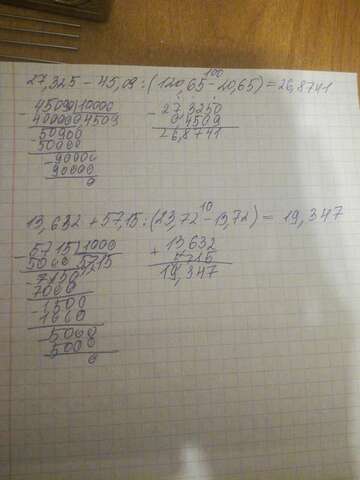 100
27,325 - 45,09 : (120,65 - 20,65) = 26,8741
- 45090 | 10000 - 27,3250
40000 0 4509 0 4509
50900 26,8741
50000
- 90000
90000
0
10
13,632 + 57,15 : (23,72 - 13,72) = 19,347
- 5715 | 1000 + 13,632
5000 5,715 5 715
- 7150 19,347
7000
- 1500
1000
5000
5000
0